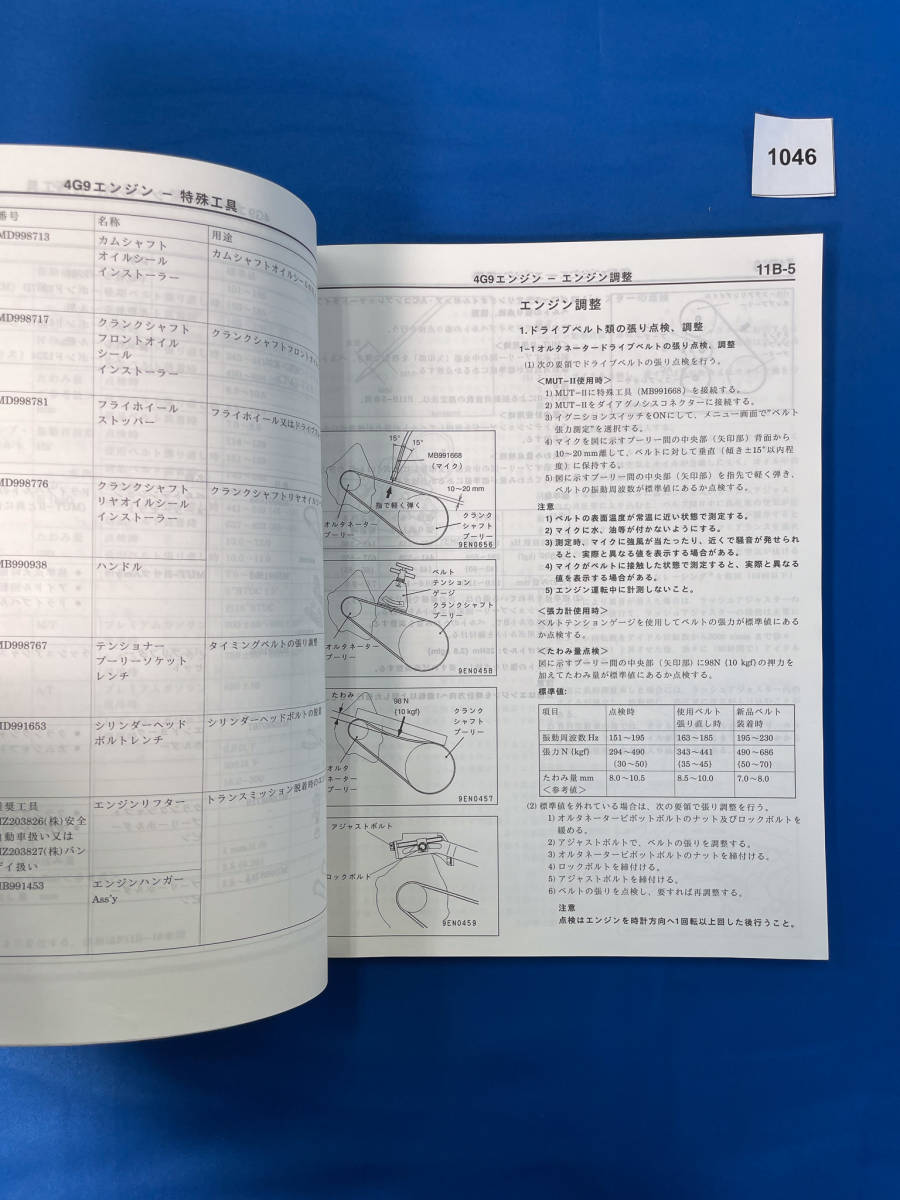 1046
4G9エンジン － 特殊工具
番号
名称
用途
MD998713
カムシャフト
オイルシール
インストーラー
カムシャフトオイルシール
MD998717
クランクシャフト
フロントオイル
シール
インストーラー
クランクシャフトフロント
MD998781
フライホイール
ストッパー
フライホイール又はドライブ
MD998776
クランクシャフト
リヤオイルシール
インストーラー
クランクシャフトリヤオイル
MB990938
ハンドル
MD998767
テンショナー
プーリーソケット
レンチ
タイミングベルトの張り調整
MB991653
シリンダーヘッド
ボルトレンチ
シリンダーヘッドボルトの脱着
推奨工具
MZ203826(株)安全
自動車扱い又は
MZ203827(株)バン
ザイ扱い
エンジンリフター
トランスミッション脱着時の
MB991453
エンジンハンガー
Ass'y
4G9エンジン － エンジン調整
11B-5
エンジン調整
1.ドライブベルト類の張り点検、調整
1-1オルタネータードライブベルトの張り点検、調整
(1) 次の要領でドライブベルトの張り点検を行う。
＜MUT-II使用時＞
1) MUT-IIに特殊工具（MB991668）を接続する。
2) MUT-IIをダイアグノシスコネクターに接続する。
3) イグニションスイッチをONにして、メニュー画面で"ベルト
張力測定"を選択する。
4) マイクを図に示すプーリー間の中央部（矢印部）背面から
10～20mm離して、ベルトに対して垂直（傾き±15°以内程
度）に保持する。
5) 図に示すプーリー間の中央部（矢印部）を指先で軽く弾き、
ベルトの振動周波数が標準値にあるか点検する。
注意
1) ベルトの表面温度が常温に近い状態で測定する。
2) マイクに水、油等が付かないようにする。
3) 測定時、マイクに強風が当たったり、近くで騒音が発せられ
ると、実際と異なる値を表示する場合がある。
4) マイクがベルトに接触した状態で測定すると、実際と異なる
値を表示する場合がある。
5) エンジン運転中に計測しないこと。
＜張力計使用時＞
ベルトテンションゲージを使用してベルトの張力が標準値にある
か点検する。
＜たわみ量点検＞
図に示すプーリー間の中央部（矢印部）に98N｛10 kgf｝の押力を
加えてたわみ量が標準値にあるか点検する。
標準値:
項目 点検時 使用ベルト 新品ベルト
張り直し時 装着時
振動周波数 Hz 151～195 163～185 195～230
張力 N｛kgf｝ 294～490 343～441 490～686
｛30～50｝ ｛35～45｝ ｛50～70｝
たわみ量 mm 8.0～10.5 8.5～10.0 7.0～8.0
＜参考値＞
(2) 標準値を外れている場合は、次の要領で張り調整を行う。
1) オルタネーターピボットボルトのナット及びロックボルトを
緩める。
2) アジャストボルトで、ベルトの張りを調整する。
3) オルタネーターピボットボルトのナットを締付ける。
4) ロックボルトを締付ける。
5) アジャストボルトを締付ける。
6) ベルトの張りを点検し、要すれば再調整する。
注意
点検はエンジンを時計方向へ1回転以上回した後行うこと。
15°
15°
MB991668
(マイク)
10～20 mm
指で軽く弾く
オルタネーター
プーリー
クランク
シャフト
プーリー
9EN0656
ベルト
テンション
ゲージ
クランクシャフト
プーリー
オルタネーター
プーリー
9EN0458
たわみ
98 N
{10 kgf}
クランク
シャフト
プーリー
オルタ
ネーター
プーリー
9EN0457
アジャストボルト
ロックボルト
9EN0459